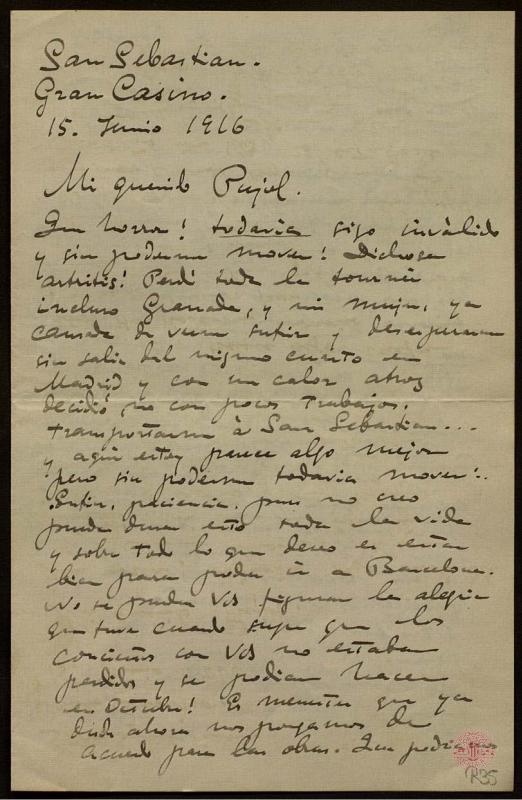 San Sebastian.
Gran Casino.
15. Junio 1916
Mi querido Pujol.
Que horror! todavia sigo inválido
y sin poderme mover! Dichosa
artritis! Perdí toda la tournée
incluso Granada, y mi mujer, ya
cansada de verme sufrir y desesperarme
sin salir del mismo cuarto en
Madrid y con un calor atroz
decidió, no con pocos trabajos,
transportarme à San Sebastian...
y aqui estoy parece algo mejor
pero sin poderme todavia mover!.
Sufrir, paciencia, pues no creo
pueda durar esto toda la vida
y sobre todo lo que deseo es estar
bien para poder ir a Barcelona.
No se pueden Vds figurar la alegria
que tuve cuando supe que los
conciertos con Vds no estaban
perdidos y se podian hacer
en Octubre! Es menester que ya
desde ahora nos pongamos de
acuerdo para las obras. Que podriamos
R35